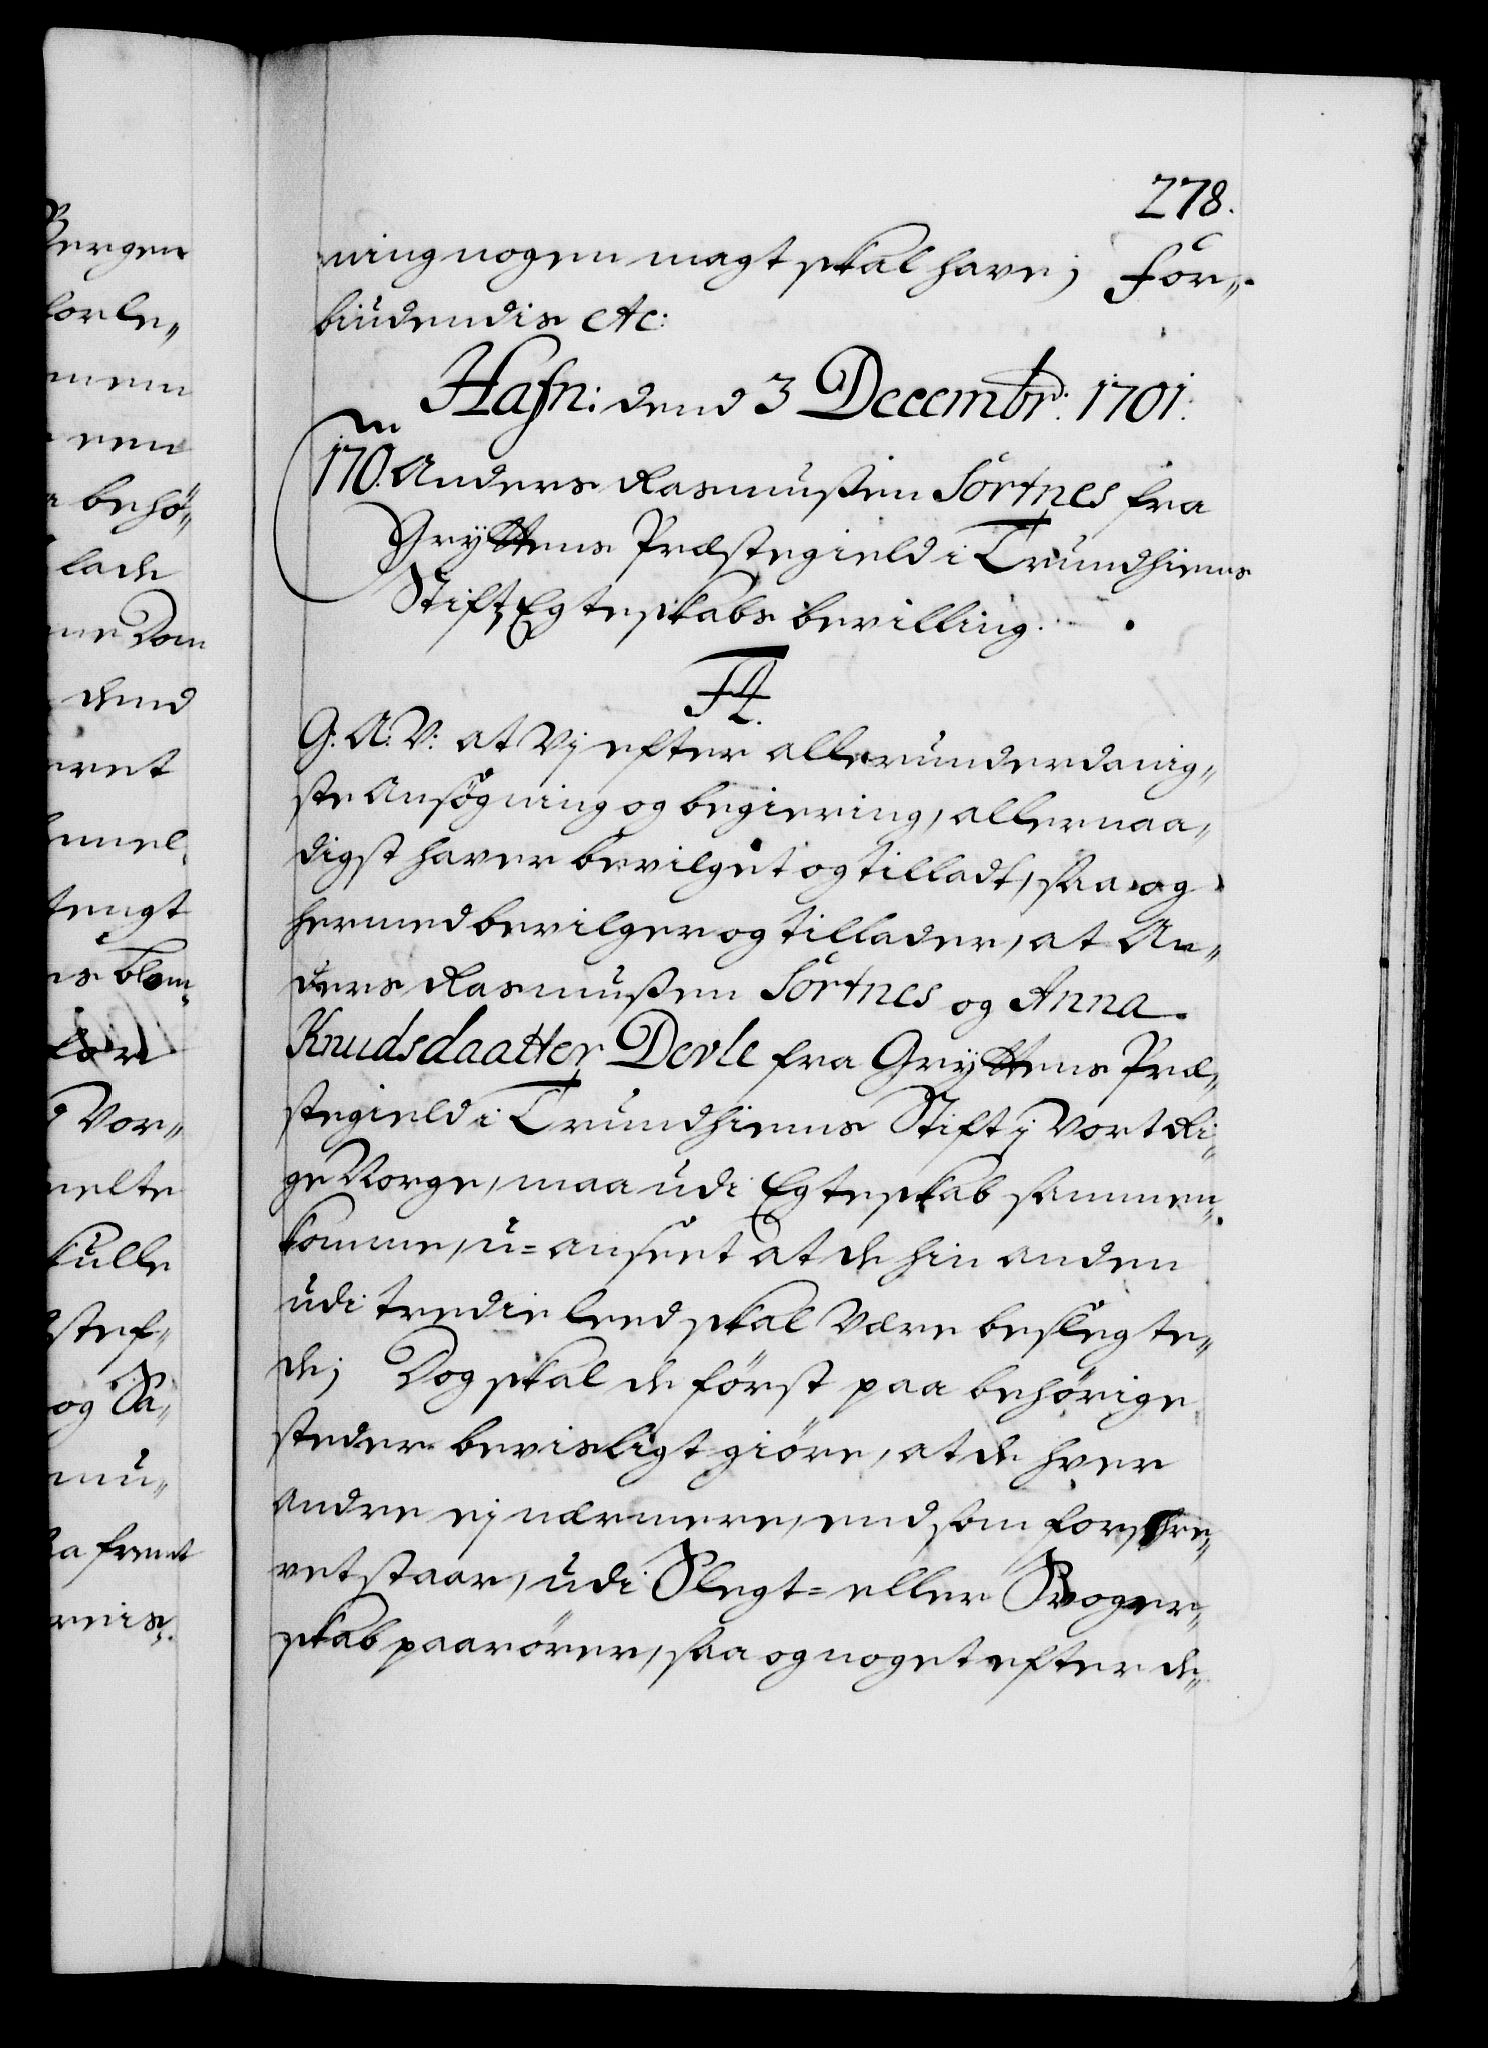 278.
ning nogen magt skal have; For„
biudendis etc:
Hafn: dend 3 Decembr: 1701.
170. Anders Rasmußen Sortnes fra
Gryttens Præstegield i Trundhiems
Stift, Egteskabs bevilling.
F 4.
G: A: V: at Vj efter allerunderdanig„
ste Ansøgning og begiering, allernaa„
digst haver bevilget og tilladt, saa og
hermed bevilger og tillader, at An„
ders Rasmußen Sortnes og Anna
Knudsdaatter Devle fra Gryttens Præ„
stegield i Trundhiems Stift j Vort Ri„
ge Norge, maa udi Egteskab sammen„
komme, u=anseet at de hin anden
udi tredie leed skal være beslegte„
de; Dog skal de först paa behörige
steder bevisligt giöre, at de hver
andre ej nærmere, end som forskre„
vet staar, udi Slegt= eller Svoger„
skab paarörer, saa og noget efter de„
Bergen
forle„
behö„
lade
ne Dom
dend
eret
tengt
for
Vor„
melte
skulle
stef„
og Sa„